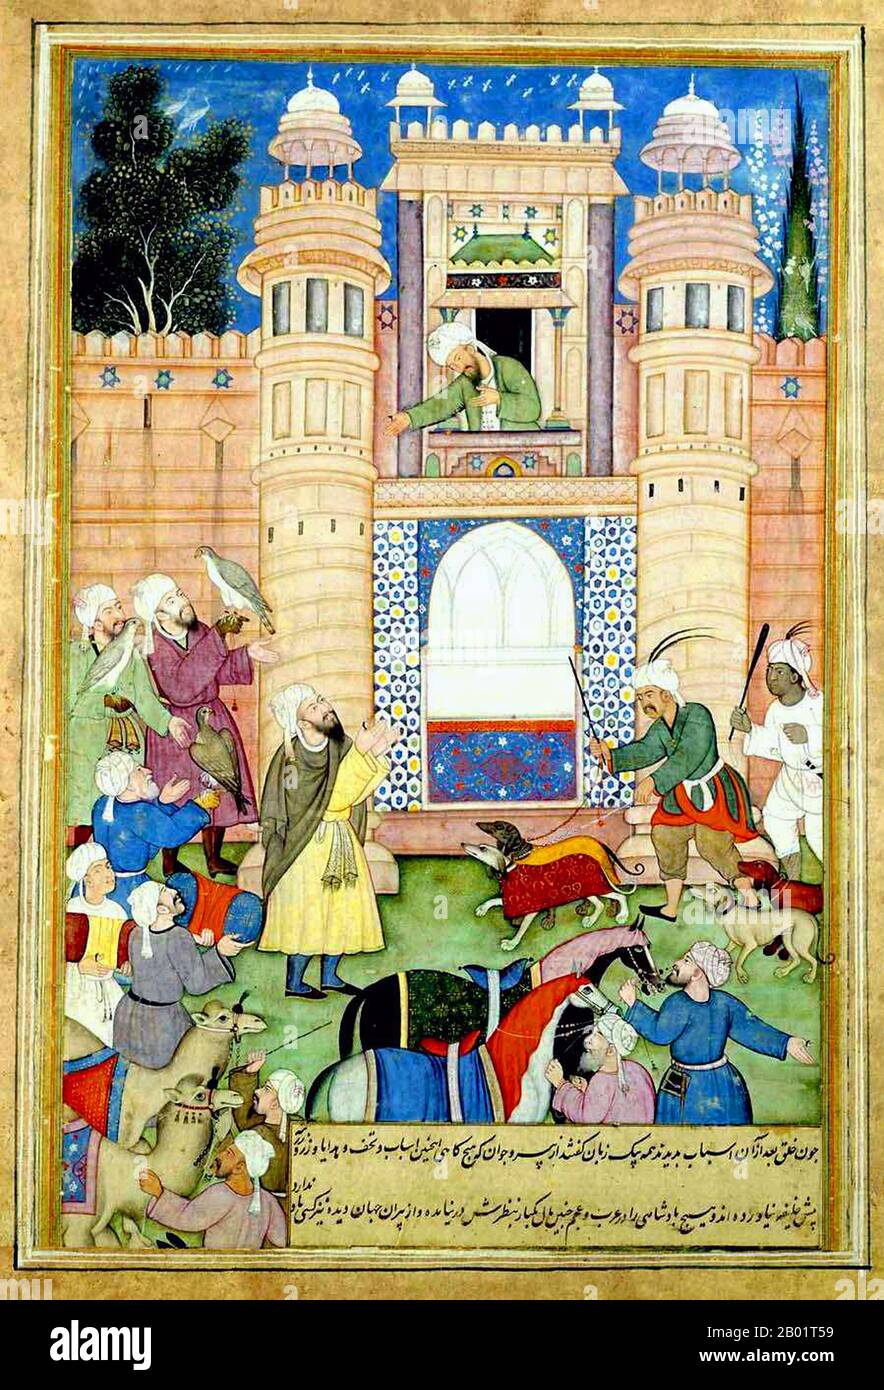 چون خلق بعد از آن اسباب بدیدند همه بیک زبان گفتند از پیر و جوان که هیچ کاهی اینچنین اسباب و تحف و هدایا و زر
پیش خلیفه نیاورده اند و هیچ پادشاهی را در عرب و عجم چنین مال یکبار بنظرش در نیامده و از پیران جهان دیده نیز کسی یاد
ندارد
a
alamy
Image ID: 2B01T59
www.alamy.com